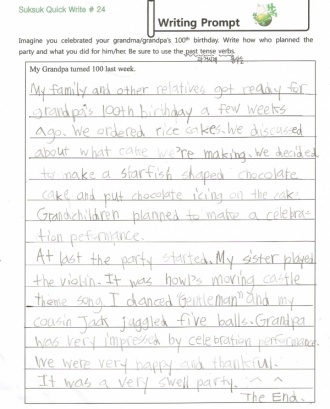 Suksuk Quick Write # 24
Writing Prompt
Imagine you celebrated your grandma/grandpa's 100th birthday. Write how who planned the
party and what you did for him/her. Be sure to use the past tense verbs.
My Grandpa turned 100 last week.
My family and other relatives got ready for
grandpa's 100th birthday a few weeks
ago. We ordered rice cakes. We discussed
about what cake we're making. We decided
to make a starfish shaped chocolate
cake and put chocolate icing on the cake.
Grandchildren planned to make a celebra-
tion peformance.
At last the party started. My sister played
the violin. It was howl's moving castle
theme song. I danced "Gentleman" and my
cousin Jack juggled five balls. Grandpa
was very impressed by celebration performance.
We were very happy and thankful.
It was a very swell party. ^ ^
The End.